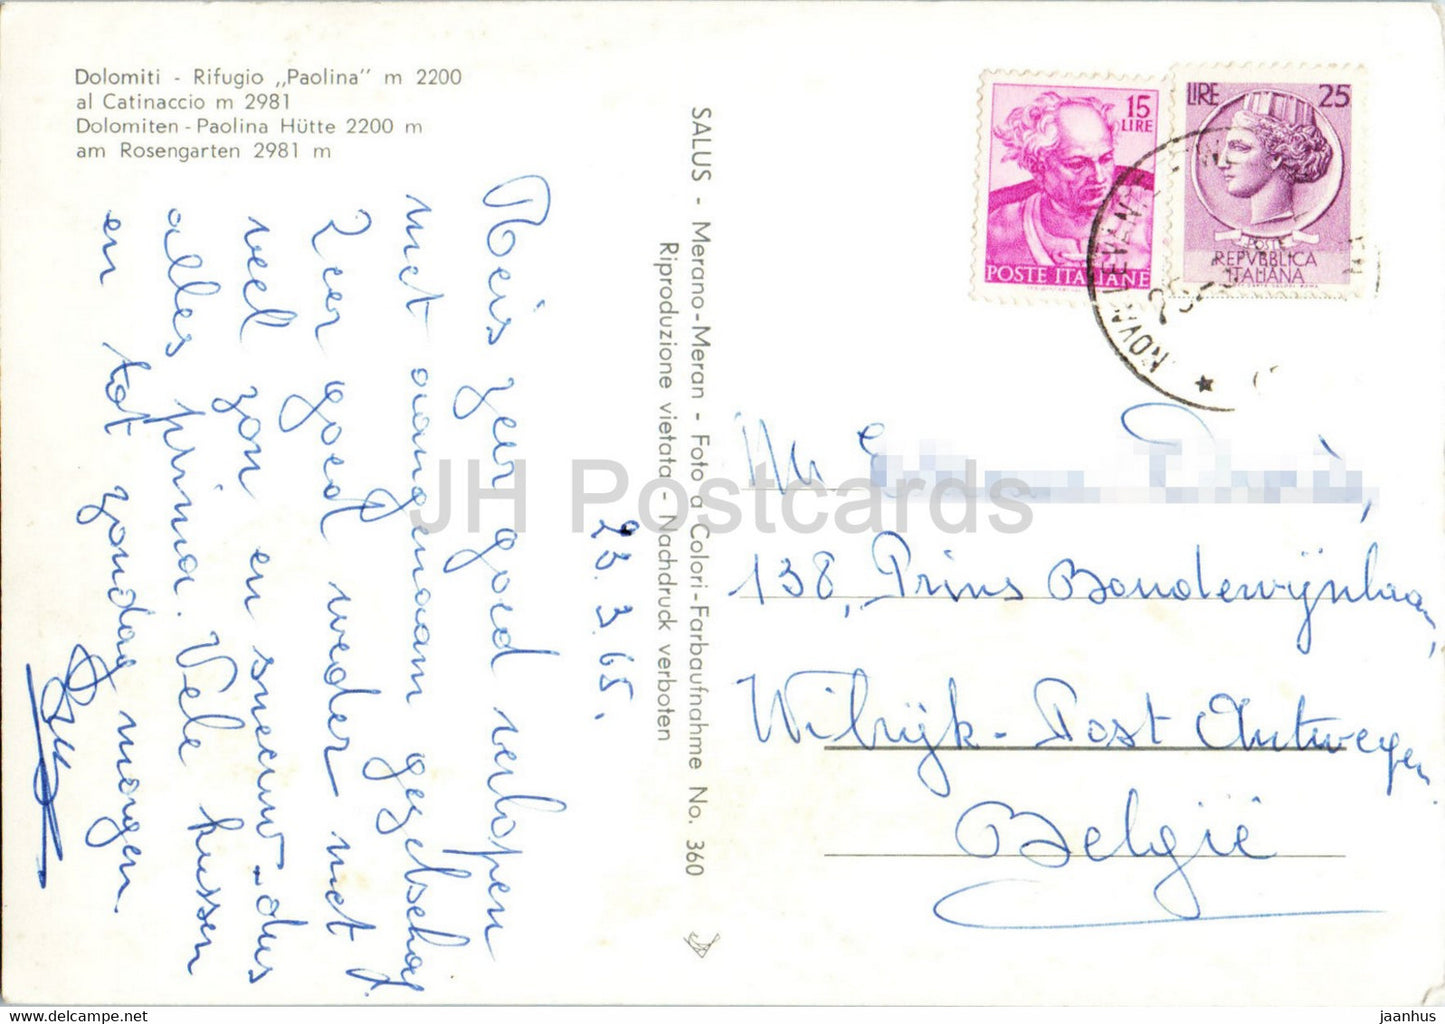 Dolomiti - Rifugio „Paolina” m 2200
al Catinaccio m 2981
Dolomiten - Paolina Hütte 2200 m
am Rosengarten 2981 m
SALUS - Merano-Meran - Foto a Colori-Farbaufnahme No. 360
Riproduzione vietata - Nachdruck verboten
15
LIRE
POSTE ITALIANE
LIRE 25
POSTE
REPVBBLICA
ITALIANA
NOVA LEVANTE
25
23.3.65.
Reis zeer goed verlopen
met aangenaam gezelschap
Zeer goed weder met
veel zon en sneeuw - dus
alles prima. Vele kussen
en tot zondag morgen.
138, Prins Boudewijnlaan,
Wilrijk - Post Antwerpen
België
JH Postcards
www.delcampe.net
jaanhus